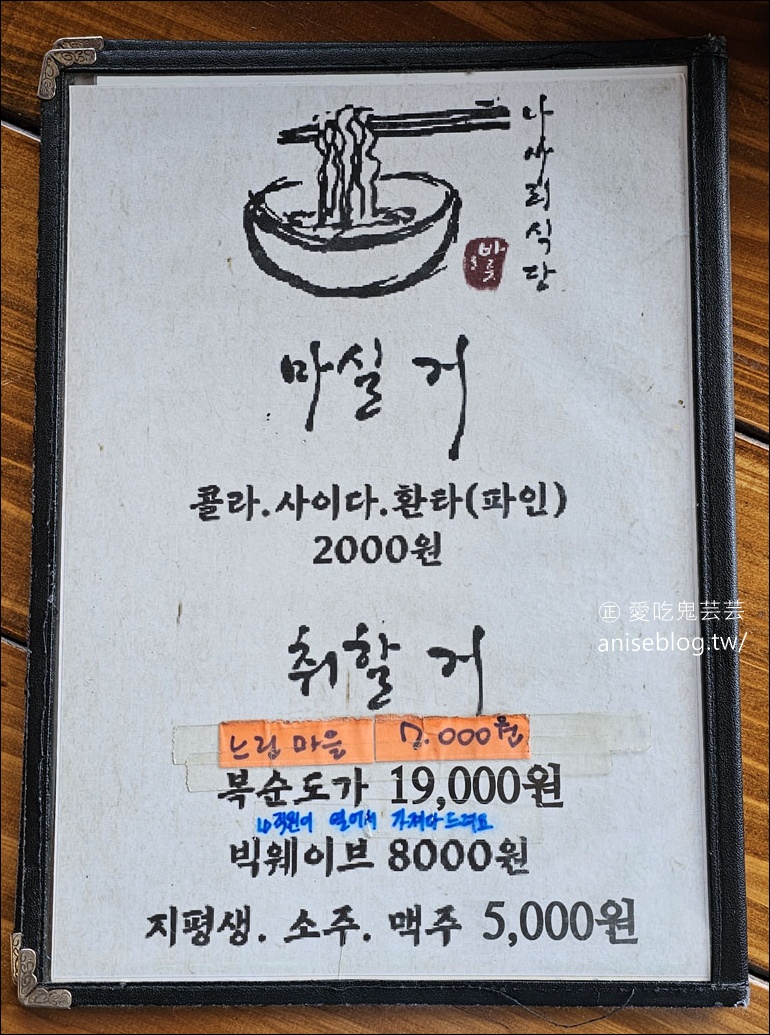 나사리식당
마실 거
콜라.사이다.환타(파인)
2000원
㊣ 愛吃鬼芸芸
aniseblog.tw/
취할 거
느린마을 7.000원
복순도가 19,000원
↳직원이 열어서 가져다드려요
빅웨이브 8000원
지평생. 소주. 맥주 5,000원